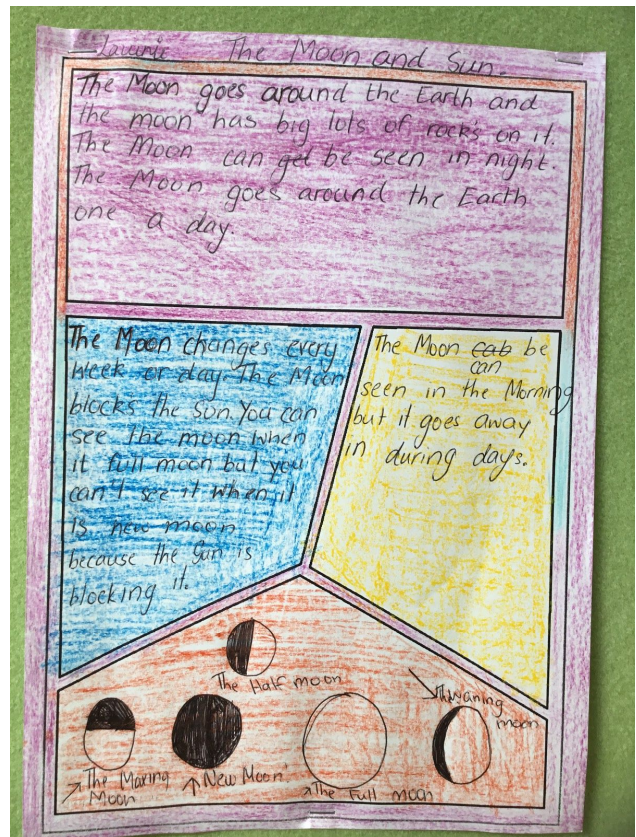 Laurie The Moon and Sun.
The Moon goes around the Earth and
the moon has big lots of rocks on it.
The Moon can get be seen in night.
The Moon goes around the Earth
one a day.
The Moon changes every
week or day. The Moon
blocks the sun. You can
see the moon when
it full moon but you
can't see it when it
is new moon
because the Sun is
blocking it.
The Moon cab be
can
seen in the Morning
but it goes away
in during days.
The Half moon
The Waning
moon
The Maxing
Moon
New Moon
The Full moon